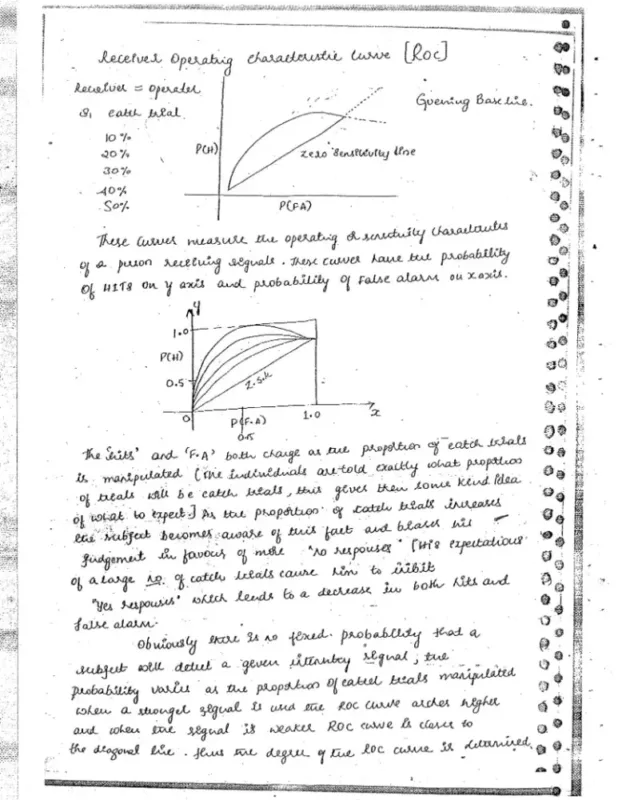 Receiver Operating characteristic curve [ROC]
Receiver = operator
catch trial
10 %
20 %
30 %
40 %
50%
P(H)
zero sensitivity line
Guessing Base line.
P(FA)
These curves measure the operating & sensitivity characteristics
of a person receiving signals. These curves have the probability
of HITS on y axis and probability of False alarm on x axis.
y
1.0
P(H)
0.5
Z.S.L
0
P(F.A)
0.5
1.0
x
The 'hits' and 'F.A' both change as the proportion of catch trials
is manipulated (The individuals are told exactly what proportion
of trials will be catch trials, this gives them some kind idea
of what to expect.] As the proportion of catch trials increases
the subject becomes aware of this fact and biases his
judgement in favour of more "no responses" [His expectations
of a large no. of catch trials cause him to inhibit
"Yes responses" which leads to a decrease in both hits and
false alarm.
Obviously there is no fixed probability that a
subject will detect a given intensity signal, the
probability varies as the proportion of catch trials manipulated
when a stronger signal is used the ROC curve arches higher
and when the signal is weaker ROC curve is closer to
the diagonal line. Thus the degree of the ROC curve is determined